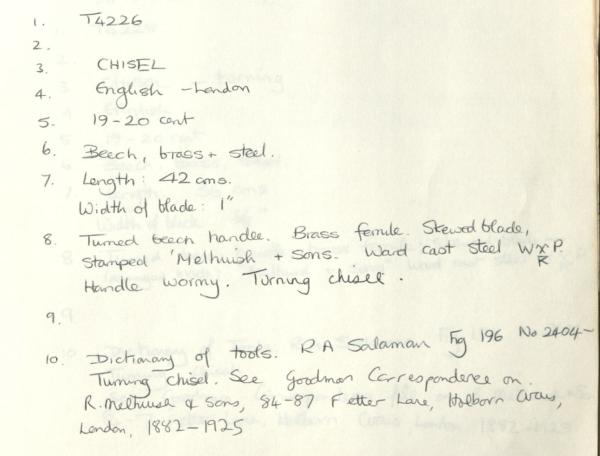 1. T4226
2.
3. CHISEL
4. English - London
5. 19-20 cent
6. Beech, brass + steel.
7. Length: 42 cms.
Width of blade: 1"
8. Turned beech handle. Brass ferrule. Skewed blade,
stamped 'Melhuish + Sons. Ward cast steel W x P.
R
Handle wormy. Turning chisel.
9.
10. Dictionary of tools. R A Salaman Fig 196 No 2404-
Turning chisel. See Goodman Correspondence on.
R. Melhuish & Sons, 84-87 Fetter Lane, Holborn
London, 1882-1925